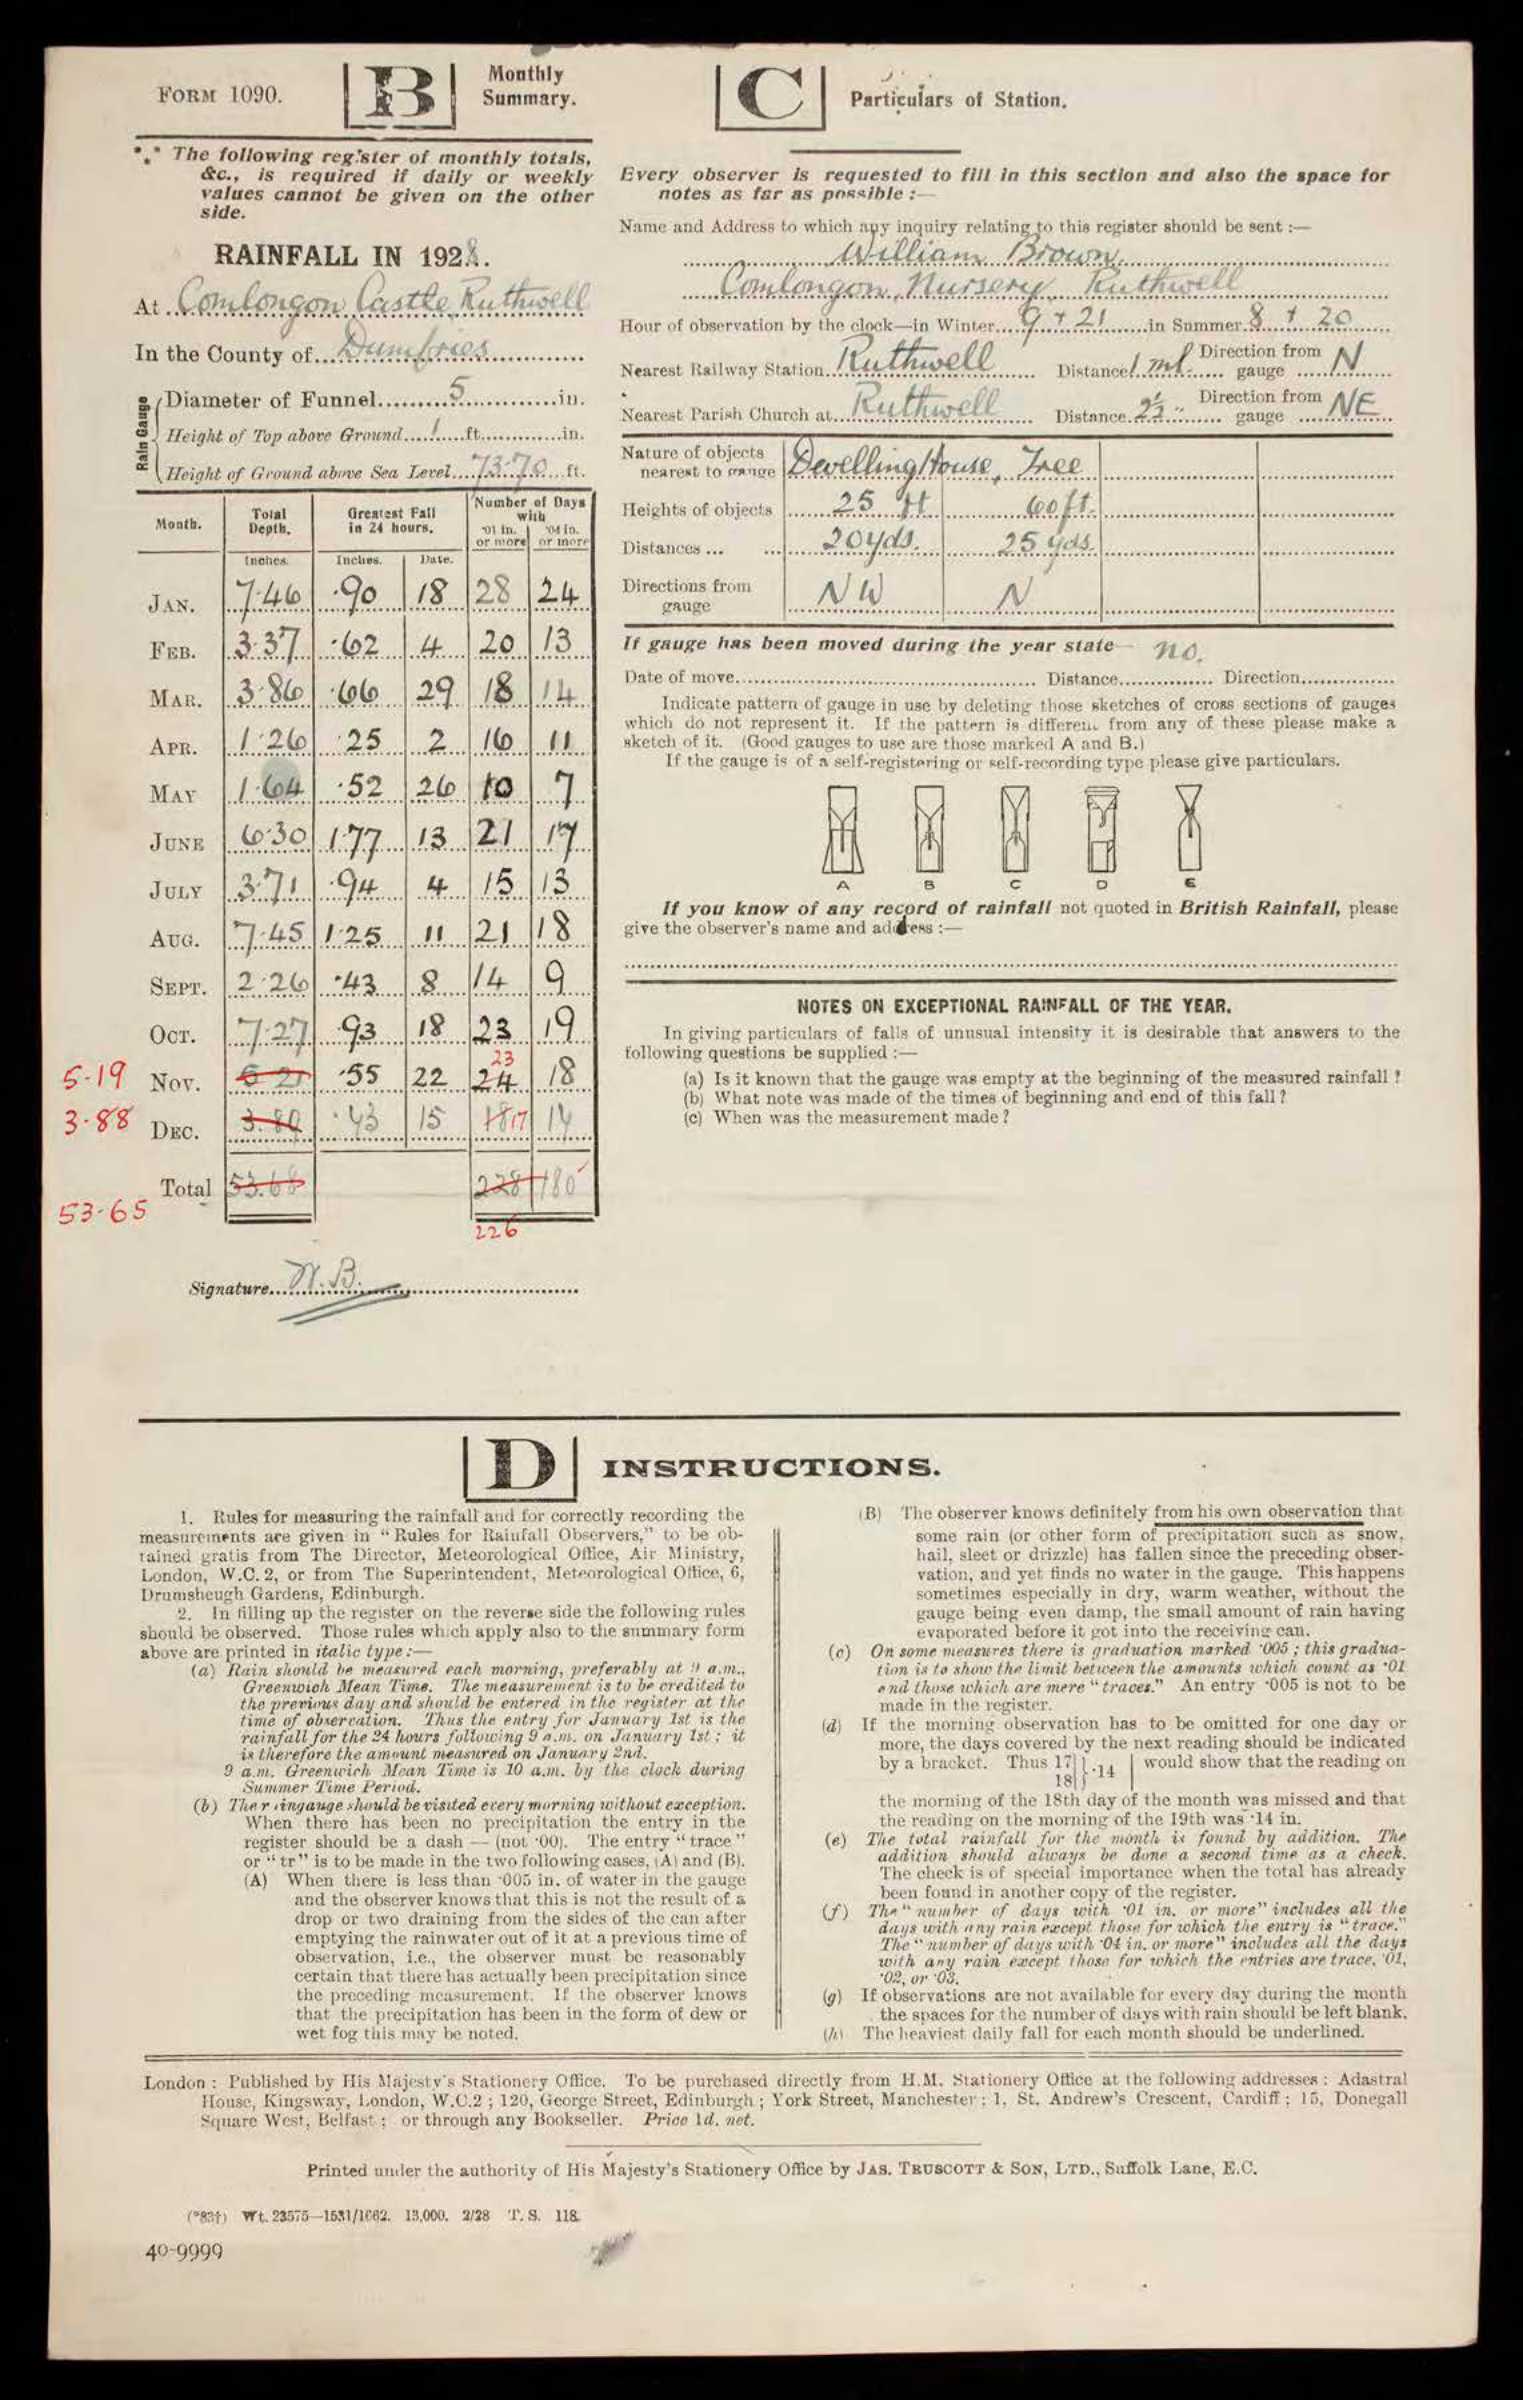 FORM 1090.
B
Monthly
Summary.
*.* The following register of monthly totals,
&c., is required if daily or weekly
values cannot be given on the other
side.
RAINFALL IN 1928.
At Comlongon Castle, Ruthwell
In the County of Dumfries
Rain Gauge
Diameter of Funnel 5 in.
Height of Top above Ground 1 ft. in.
Height of Ground above Sea Level 73.70 ft.
Month. Total Depth. Greatest Fall in 24 hours. Number of Days with
·01 in. or more ·04 in. or more
Inches. Inches. Date.
JAN. 7.46 .90 18 28 24
FEB. 3.37 .62 4 20 13
MAR. 3.86 .66 29 18 14
APR. 1.26 .25 2 16 11
MAY 1.64 .52 26 10 7
JUNE 6.30 1.77 13 21 17
JULY 3.71 .94 4 15 13
AUG. 7.45 1.25 11 21 18
SEPT. 2.26 .43 8 14 9
OCT. 7.27 .93 18 23 19
5.19 NOV. 5.21 .55 22 24 23 18
3.88 DEC. 3.89 .43 15 18 17 14
53.65 Total 53.68 228 180
226
Signature W.B.
C
Particulars of Station.
Every observer is requested to fill in this section and also the space for
notes as far as possible :—
Name and Address to which any inquiry relating to this register should be sent :—
William Brown.
Comlongon Nursery, Ruthwell
Hour of observation by the clock—in Winter 9 + 21 in Summer 8 + 20
Nearest Railway Station Ruthwell Distance 1 ml. Direction from gauge N
Nearest Parish Church at Ruthwell Distance 2½ " Direction from gauge NE
Nature of objects nearest to gauge Dwelling House, Tree
Heights of objects 25 ft 60 ft.
Distances ... ... 20 yds. 25 yds.
Directions from gauge NW N
If gauge has been moved during the year state— no.
Date of move Distance Direction
Indicate pattern of gauge in use by deleting those sketches of cross sections of gauges
which do not represent it. If the pattern is different from any of these please make a
sketch of it. (Good gauges to use are those marked A and B.)
If the gauge is of a self-registering or self-recording type please give particulars.
A B C D E
If you know of any record of rainfall not quoted in British Rainfall, please
give the observer's name and address :—
NOTES ON EXCEPTIONAL RAINFALL OF THE YEAR.
In giving particulars of falls of unusual intensity it is desirable that answers to the
following questions be supplied :—
(a) Is it known that the gauge was empty at the beginning of the measured rainfall ?
(b) What note was made of the times of beginning and end of this fall ?
(c) When was the measurement made ?
D
INSTRUCTIONS.
1. Rules for measuring the rainfall and for correctly recording the
measurements are given in "Rules for Rainfall Observers," to be ob-
tained gratis from The Director, Meteorological Office, Air Ministry,
London, W.C. 2, or from The Superintendent, Meteorological Office, 6,
Drumsheugh Gardens, Edinburgh.
2. In filling up the register on the reverse side the following rules
should be observed. Those rules which apply also to the summary form
above are printed in italic type :—
(a) Rain should be measured each morning, preferably at 9 a.m.,
Greenwich Mean Time. The measurement is to be credited to
the previous day and should be entered in the register at the
time of observation. Thus the entry for January 1st is the
rainfall for the 24 hours following 9 a.m. on January 1st ; it
is therefore the amount measured on January 2nd.
9 a.m. Greenwich Mean Time is 10 a.m. by the clock during
Summer Time Period.
(b) The raingauge should be visited every morning without exception.
When there has been no precipitation the entry in the
register should be a dash — (not ·00). The entry "trace"
or "tr" is to be made in the two following cases, (A) and (B).
(A) When there is less than ·005 in. of water in the gauge
and the observer knows that this is not the result of a
drop or two draining from the sides of the can after
emptying the rainwater out of it at a previous time of
observation, i.e., the observer must be reasonably
certain that there has actually been precipitation since
the preceding measurement. If the observer knows
that the precipitation has been in the form of dew or
wet fog this may be noted.
(B) The observer knows definitely from his own observation that
some rain (or other form of precipitation such as snow,
hail, sleet or drizzle) has fallen since the preceding obser-
vation, and yet finds no water in the gauge. This happens
sometimes especially in dry, warm weather, without the
gauge being even damp, the small amount of rain having
evaporated before it got into the receiving can.
(c) On some measures there is graduation marked ·005 ; this gradua-
tion is to show the limit between the amounts which count as ·01
and those which are mere "traces." An entry ·005 is not to be
made in the register.
(d) If the morning observation has to be omitted for one day or
more, the days covered by the next reading should be indicated
by a bracket. Thus 17 18 } ·14 would show that the reading on
the morning of the 18th day of the month was missed and that
the reading on the morning of the 19th was ·14 in.
(e) The total rainfall for the month is found by addition. The
addition should always be done a second time as a check.
The check is of special importance when the total has already
been found in another copy of the register.
(f) The "number of days with ·01 in. or more" includes all the
days with any rain except those for which the entry is "trace."
The "number of days with ·04 in. or more" includes all the days
with any rain except those for which the entries are trace, ·01,
·02, or ·03.
(g) If observations are not available for every day during the month
the spaces for the number of days with rain should be left blank.
(h) The heaviest daily fall for each month should be underlined.
London : Published by His Majesty's Stationery Office. To be purchased directly from H.M. Stationery Office at the following addresses : Adastral
House, Kingsway, London, W.C.2 ; 120, George Street, Edinburgh ; York Street, Manchester ; 1, St. Andrew's Crescent, Cardiff ; 15, Donegall
Square West, Belfast ; or through any Bookseller. Price 1d. net.
Printed under the authority of His Majesty's Stationery Office by JAS. TRUSCOTT & SON, LTD., Suffolk Lane, E.C.
(*83†) Wt. 23575—1531/1662. 13,000. 2/28 T. S. 118.
40-9999